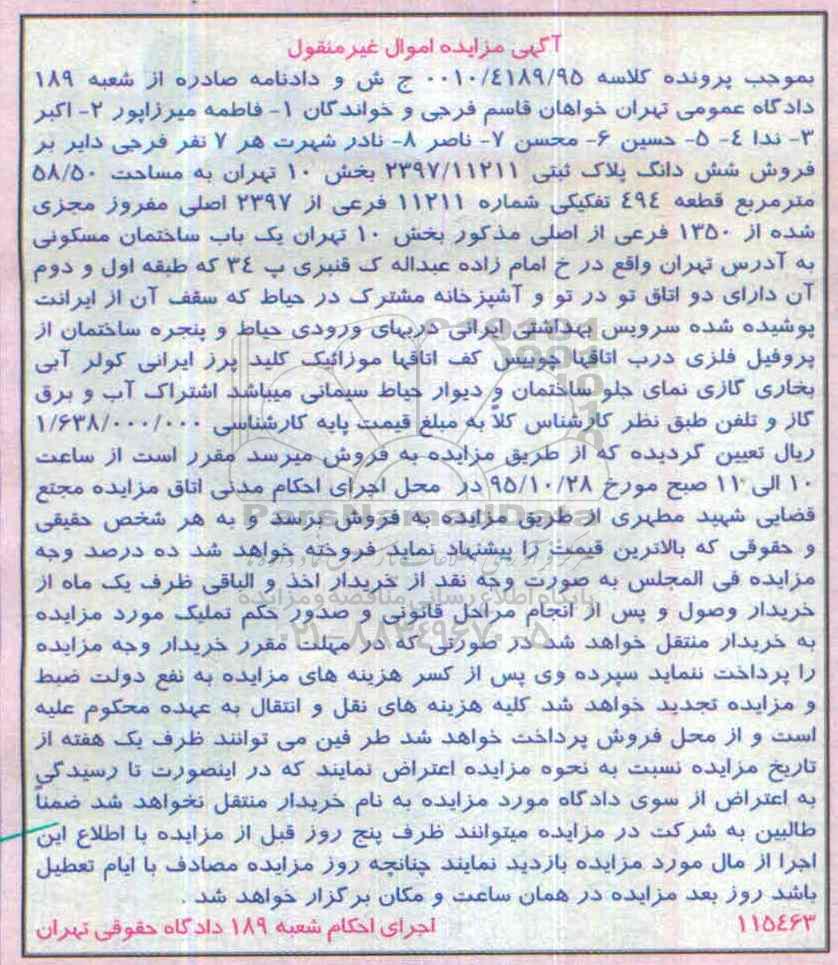 آگهی مزایده اموال غیرمنقول
بموجب پرونده کلاسه ۰۰۱۰/٤۱۸۹/۹۵ ج ش و دادنامه صادره از شعبه ۱۸۹
دادگاه عمومی تهران خواهان قاسم فرجی و خواندگان ۱- فاطمه میرزاپور ۲- اکبر
۳- ندا ٤- ۵- حسین ۶- محسن ۷- ناصر ۸- نادر شهرت هر ۷ نفر فرجی دایر بر
فروش شش دانگ پلاک ثبتی ۲۳۹۷/۱۱۲۱۱ بخش ۱۰ تهران به مساحت ۵۸/۵۰
مترمربع قطعه ٤۹٤ تفکیکی شماره ۱۱۲۱۱ فرعی از ۲۳۹۷ اصلی مفروز مجزی
شده از ۱۳۵۰ فرعی از اصلی مذکور بخش ۱۰ تهران یک باب ساختمان مسکونی
به آدرس تهران واقع در خ امام زاده عبداله ک قنبری پ ۳٤ که طبقه اول و دوم
آن دارای دو اتاق تو در تو و آشپزخانه مشترک در حیاط که سقف آن از ایرانت
پوشیده شده سرویس بهداشتی ایرانی دربهای ورودی حیاط و پنجره ساختمان از
پروفیل فلزی درب اتاقها چوبیس کف اتاقها موزائیک کلید پرز ایرانی کولر آبی
بخاری گازی نمای جلو ساختمان و دیوار حیاط سیمانی میباشد اشتراک آب و برق
گاز و تلفن طبق نظر کارشناس کلاً به مبلغ قیمت پایه کارشناسی ۱/۶۳۸/۰۰۰/۰۰۰
ریال تعیین گردیده که از طریق مزایده به فروش میرسد مقرر است از ساعت
۱۰ الی ۱۱ صبح مورخ ۹۵/۱۰/۲۸ در محل اجرای احکام مدنی اتاق مزایده مجتع
قضایی شهید مطهری از طریق مزایده به فروش برسد و به هر شخص حقیقی
و حقوقی که بالاترین قیمت را پیشنهاد نماید فروخته خواهد شد ده درصد وجه
مزایده فی المجلس به صورت وجه نقد از خریدار اخذ و الباقی ظرف یک ماه از
خریدار وصول و پس از انجام مراحل قانونی و صدور حکم تملیک مورد مزایده
به خریدار منتقل خواهد شد در صورتی که در مهلت مقرر خریدار وجه مزایده
را پرداخت ننماید سپرده وی پس از کسر هزینه های مزایده به نفع دولت ضبط
و مزایده تجدید خواهد شد کلیه هزینه های نقل و انتقال به عهده محکوم علیه
است و از محل فروش پرداخت خواهد شد طر فین می توانند ظرف یک هفته از
تاریخ مزایده نسبت به نحوه مزایده اعتراض نمایند که در اینصورت تا رسیدگی
به اعتراض از سوی دادگاه مورد مزایده به نام خریدار منتقل نخواهد شد ضمناً
طالبین به شرکت در مزایده میتوانند ظرف پنج روز قبل از مزایده با اطلاع این
اجرا از مال مورد مزایده بازدید نمایند چنانچه روز مزایده مصادف با ایام تعطیل
باشد روز بعد مزایده در همان ساعت و مکان برگزار خواهد شد .
۱۱۵٤۶۳ اجرای احکام شعبه ۱۸۹ دادگاه حقوقی تهران
ParsNamadData
پایگاه اطلاع رسانی مناقصه و مزایده
۰۲۱-۸۸۳٤۹۶۷۰-۵